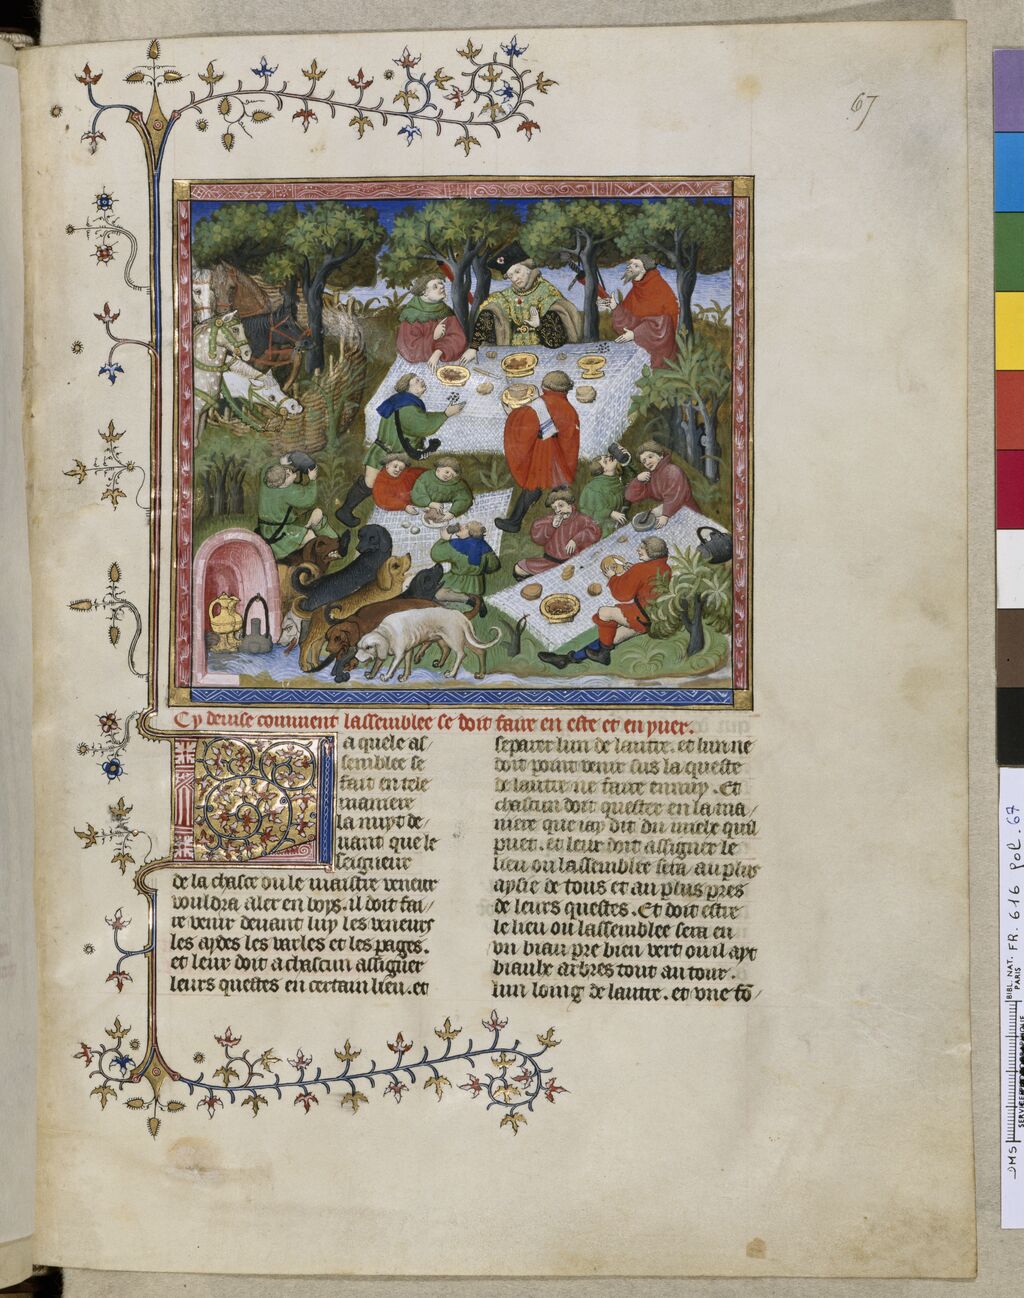 67
Cy deuise comment lassemblee se doit faire en este et en yuer.
a quele as/
semblee se
fait en tele
maniere
la nuyt de/
uant que le
seigneur
de la chasce ou le maistre veneur
vouldra aler en boys. il doit fai/
re venir deuant luy les veneurs
les aydes les varles et les pages.
et leur doit a chascun assigner
leurs questes en certain lieu. et
separer lun de lautre. et lun ne
doit point venir sus la queste
de lautre ne faire ennuy. Et
chascun doit quester en la ma/
niere que iay dit du mielx quil
puet. et leur doit assigner le
lieu ou lassemblee sera au plus
aysie de tous et au plus pres
de leurs questes. Et doit estre
le lieu ou lassemblee sera en
vn biau pre bien vert ou il ayt
biaulx arbres tout au tour.
lun loing de lautre. et vne fō/
BIBL. NAT. FR. 616 fol. 67
PARIS